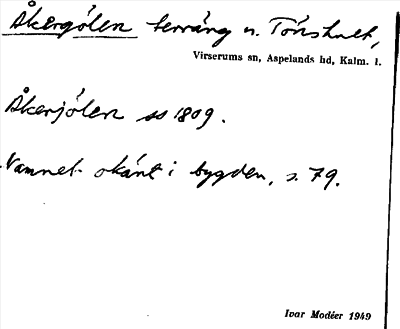 Åkergölen terräng n. Tönshult,
Virserums sn, Aspelands hd, Kalm. l.
Åkerjölen so 1809.
Namnet okänt i bygden, s. 79.
Ivar Modéer 1949